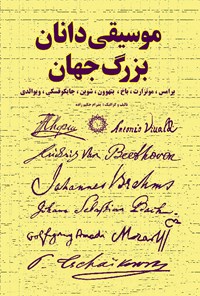 موسیقی دانان
بزرگ جهان
برامس ، موتزارت ، باخ ، بتهوون ، شوپن ، چایکوفسکی ، ویوالدی
تالیف و گرافیک : بهرام حکیم زاده
Chopin
Antonio Vivaldi
Ludwig van Beethoven
Johannes Brahms
Johann Sebastian Bach
Wolfgang Amadè Mozart
P. Tschaikowsky